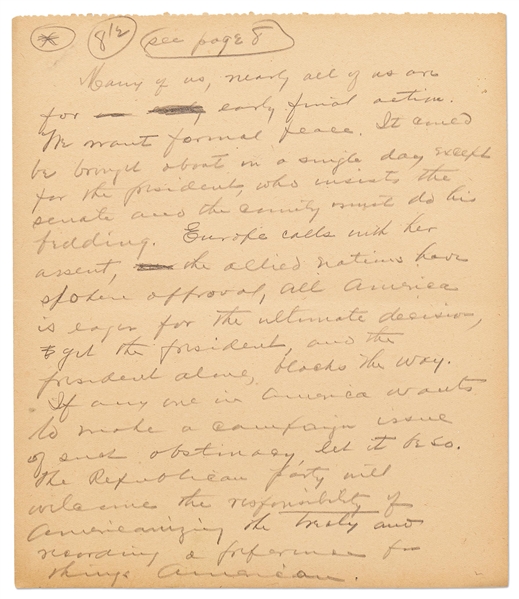 * 8 1/2 see page 8
Many of us, nearly all of us are
for early final action.
We want formal peace. It could
be brought about in a single day except
for the president, who insists the
senate and the country must do his
bidding. Europe calls with her
assent, the allied nations have
spoken approval, all America
is eager for the ultimate decision,
yet the president, and the
president alone, blocks the way.
If any one in America wants
to make a campaign issue
of such obstinacy let it be so.
The Republican party will
welcome the responsibility of
Americanizing the treaty and
recording a preference for
things American.